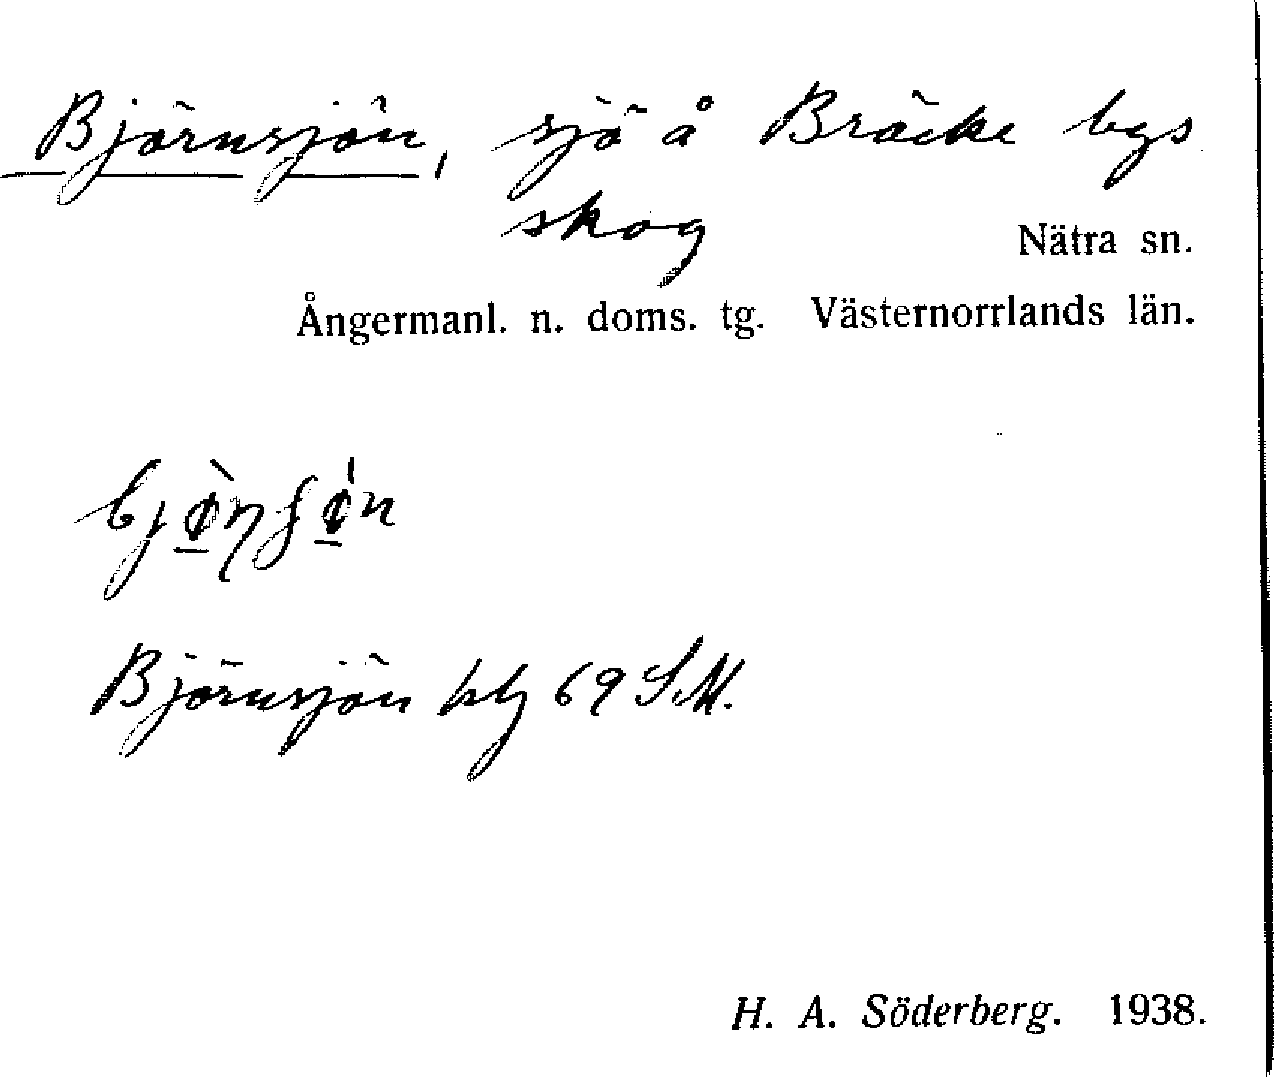 Björnsjön, sjö å Bräcke bys
skog
Nätra sn.
Ångermanl. n. doms. tg. Västernorrlands län.
Björnsjön 69 S.M.
H. A. Söderberg. 1938.